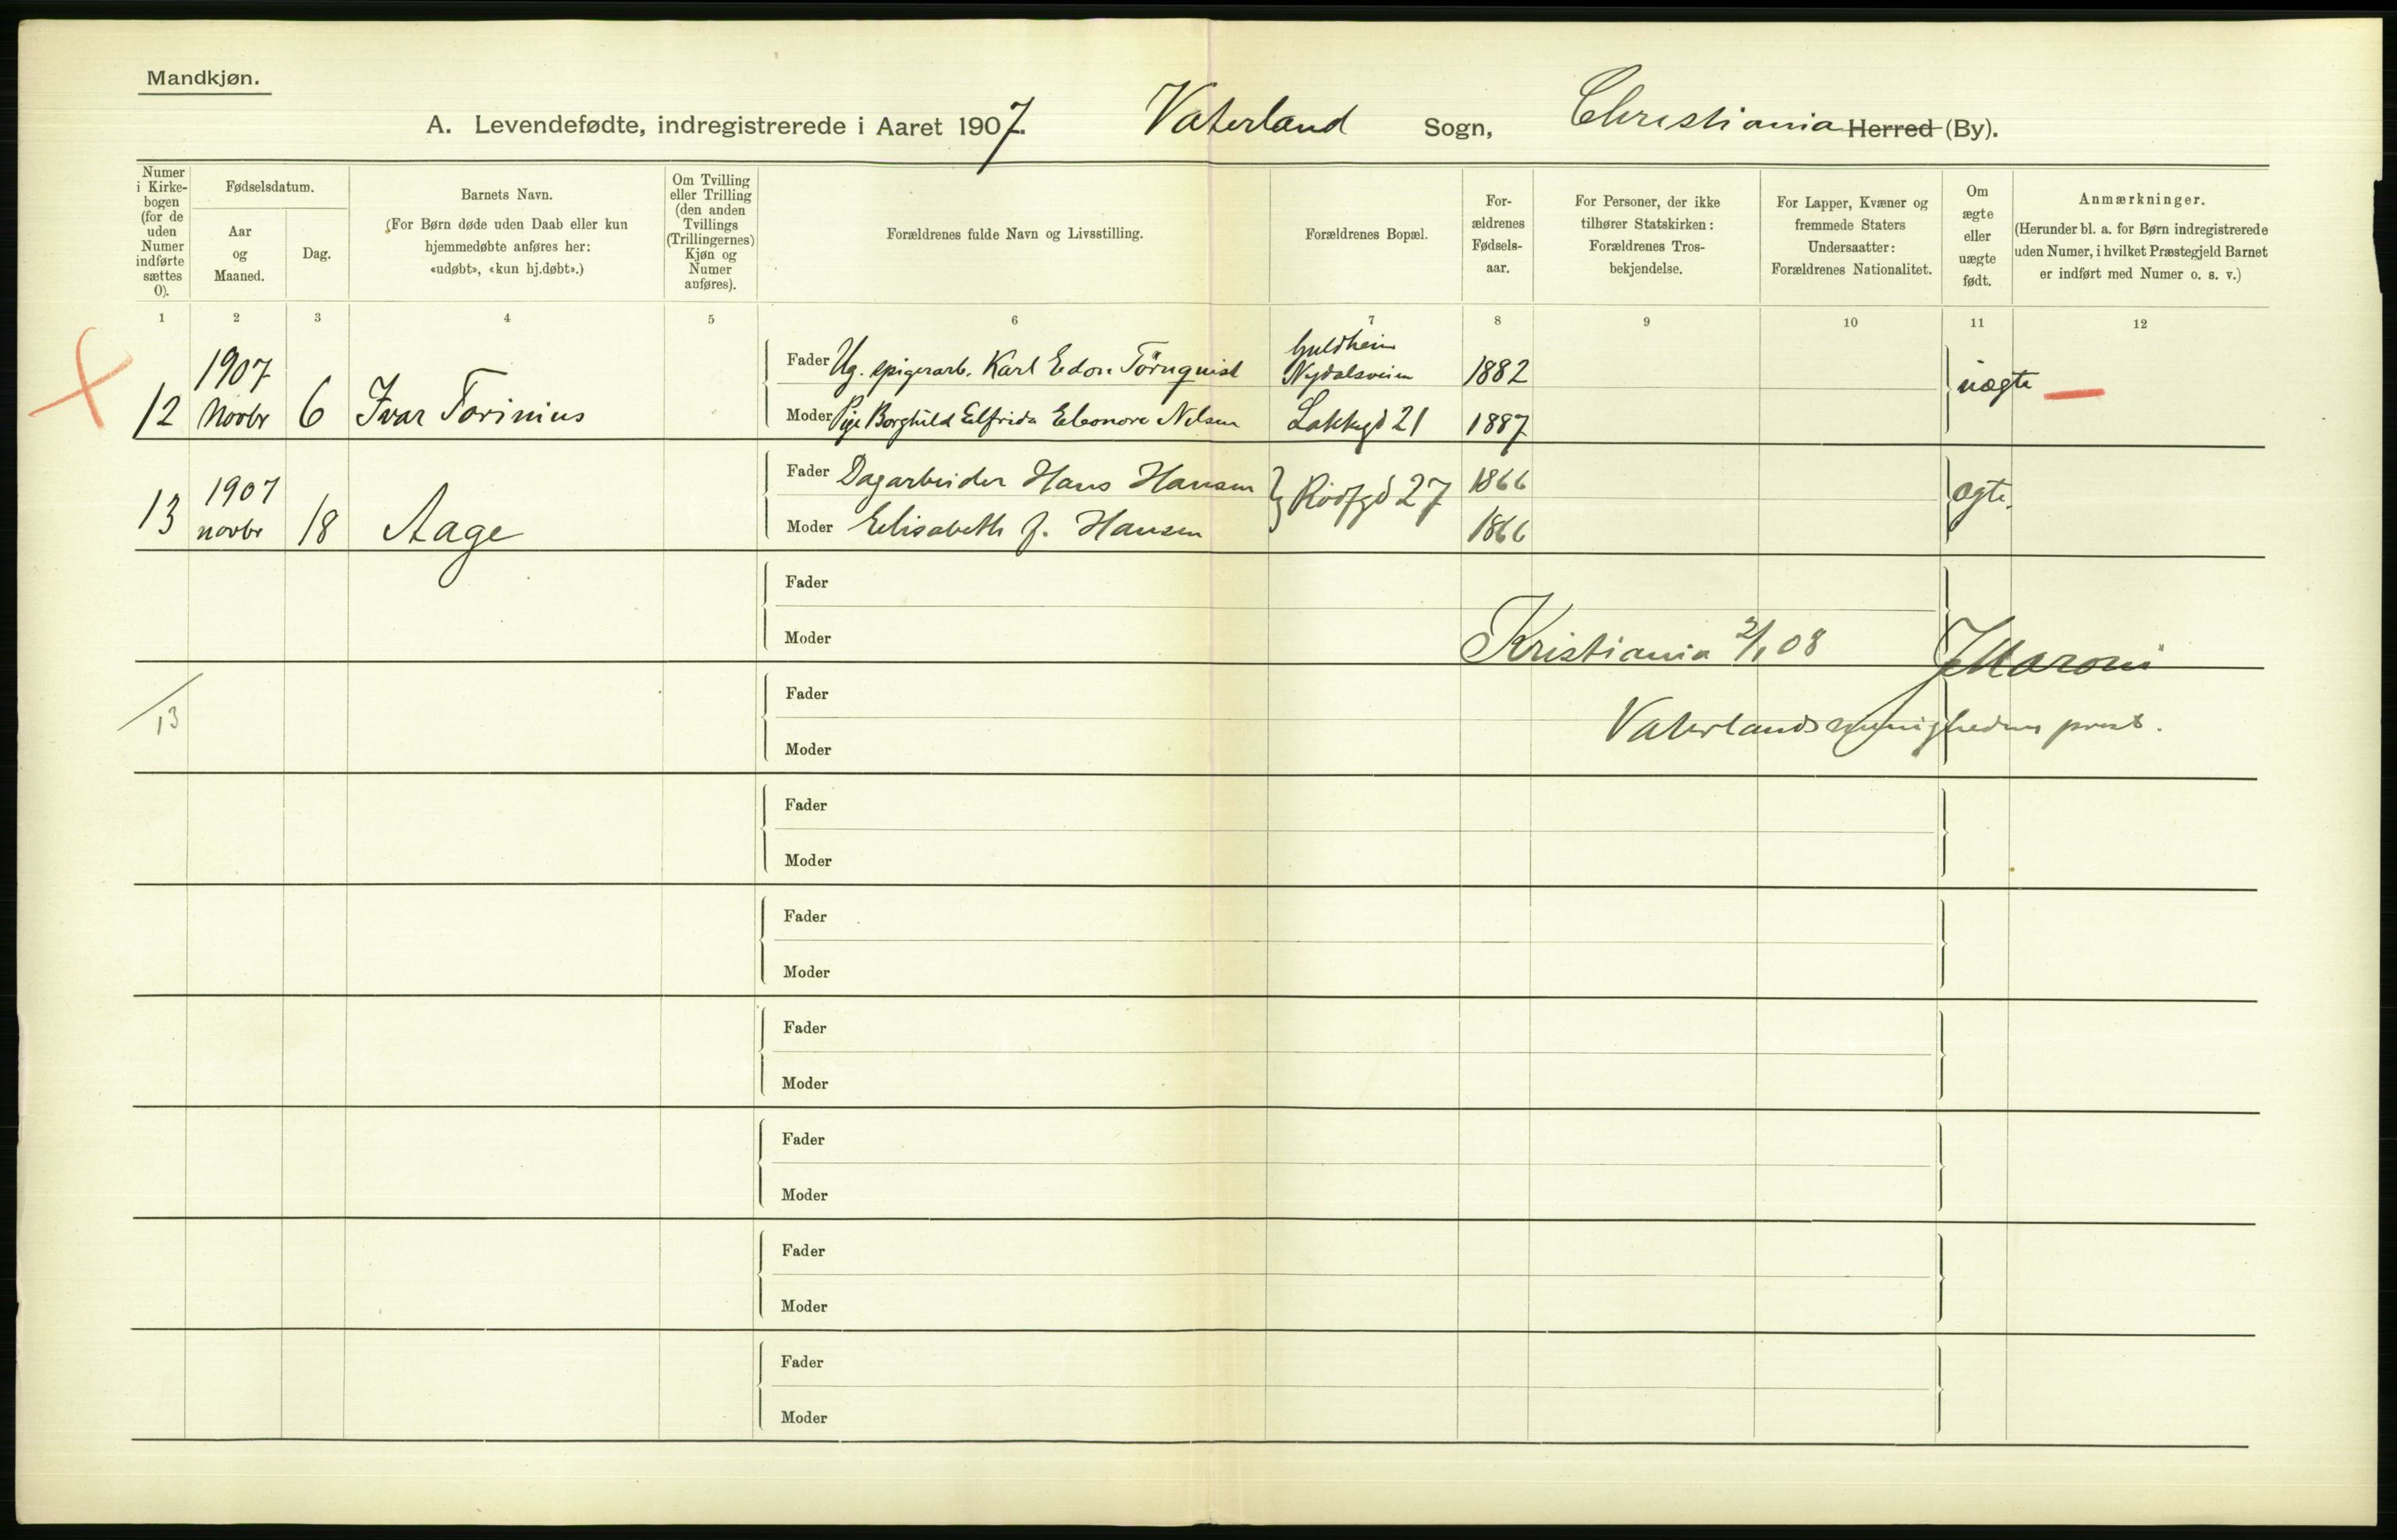 Mandkjøn.
A. Levendefødte, indregistrerede i Aaret 1907. Vaterland Sogn, Christiania Herred (By).
Numer i Kirkebogen (for de uden Numer indførte sættes 0).
Fødselsdatum.
Aar og Maaned.
Dag.
Barnets Navn.
(For Børn døde uden Daab eller kun
hjemmedøbte anføres her:
«udøbt», «kun hj.døbt».)
Om Tvilling
eller Trilling
(den anden
Tvillings
(Trillingernes)
Kjøn og
Numer
anføres).
Forældrenes fulde Navn og Livsstilling.
Forældrenes Bopæl.
For-
ældrenes
Fødsels-
aar.
For Personer, der ikke
tilhører Statskirken:
Forældrenes Tros-
bekjendelse.
For Lapper, Kvæner og
fremmede Staters
Undersaatter:
Forældrenes Nationalitet.
Om
ægte
eller
uægte
født.
Anmærkninger.
(Herunder bl. a. for Børn indregistrerede
uden Numer, i hvilket Præstegjeld Barnet
er indført med Numer o. s. v.)
1 2 3 4 5 6 7 8 9 10 11 12
12 1907 Novbr 6 Ivar Torinius
Fader Ug. spigerarb. Karl Edon Törnquist Guldheim Nydalsveien 1882 uægte
Moder Pige Borghild Elfrida Eleonore Nilsen Lakkegd 21 1887
13 1907 novbr 18 Aage
Fader Dagarbeider Hans Hansen Rødfgd 27 1866 ægte.
Moder Elisabeth J. Hansen 1866
Fader
Moder
Kristiania 2/1 08 JMaroni
13
Fader
Vaterlandsmenighedens prest.
Moder
Fader
Moder
Fader
Moder
Fader
Moder
Fader
Moder
Fader
Moder
Fader
Moder